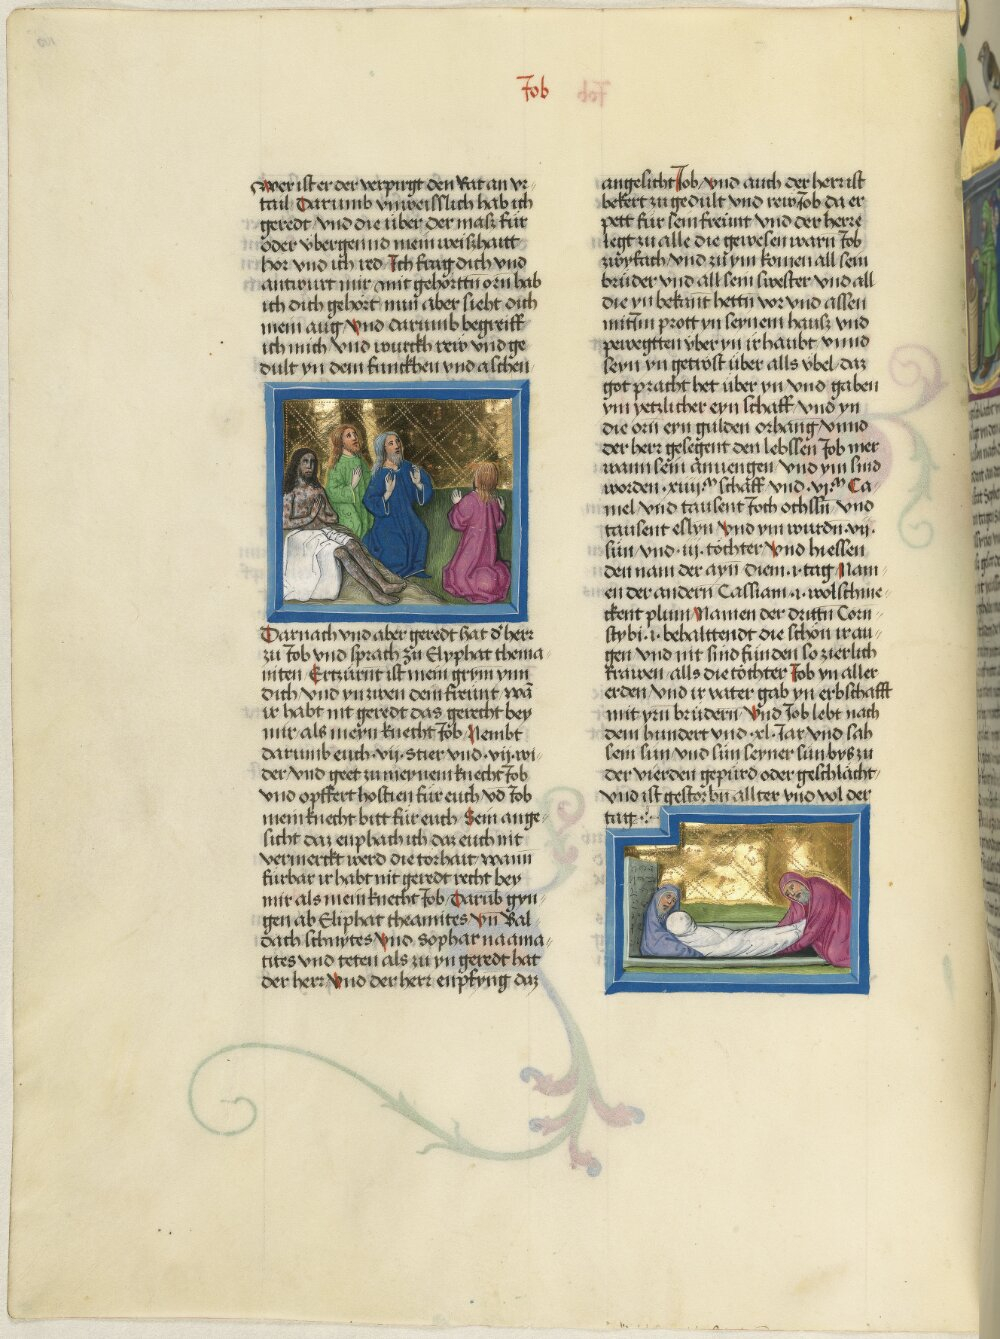 Job
wer ist er der verpirgt den Rat an vr-
tail Darumb vnweisslich hab ich
geredt vnd die über der masz für
oder vbergeund mein weißhaitt
hor vnd ich red Ich frag dich vnd
antwurt mir mit gehörttn orn hab
ich dich gehört nun aber sieht dich
mein aug Vnd darumb begreiff
ich mich vnd wurckh rew vnd ge
dult yn dem funckhen vnd aschen
Darnach vnd aber geredt hat d' herr
zu Job vnd sprach zu Elyphat thema-
niten Ertzürnt ist mein grym ynn
dich vnd yn zwen dein freünt wā
ir habt nit geredt das gerecht bey
mir als meyn knecht Job Nembt
darumb euch .vij. stier vnd .vij. wi-
der vnd geet zu meynem knecht Job
vnd opffert hostien für euch vd Job
mein knecht bitt für euch Sein ange-
sicht daz enphach ich daz euch nit
vermerckt werd die torhait wann
fürbar ir habt nit geredt recht bey
mir als mein knecht Job Darüb gyn-
gen ab Eliphat theamites vn Bal
dach schuytes Vnd sophar naama-
tites vnd teten als zu yn geredt hat
der herr Vnd der herr enpfyng daz
angesicht Job vnd auch der herr ist
bekert zu gedült vnd rew Job da er
pett für sein freünt vnd der herre
legt zu alle die gewesen warn Job
zwyfach vnd zu ym komen all sein
brüder vnd all sein swester vnd all
die yn bekant hettn vor vnd assen
mit im prott yn seynem hausz vnd
pewegtten vber yn ir haubt vnnd
seyn yn getröst über alls vbel daz
got pracht het über yn vnd gaben
ym yetzlicher eyn schaff vnd yn
die orn eyn gulden orhang vnnd
der herr gesegent den lebssen Job mer
wann sein anuengen vnd ym sind
worden .xiiij.m schäff vnd .vj.m Ca
mel vnd tausent Joch ochssn vnd
tausent eslyn Vnd ym wurdn .vij.
sün vnd .iij. töchter Vnd hiessen
den nam der ayn Diem .i. tag Nam-
en der andern Cassiam .i. wolschme-
ckent plum Namen der drittn Corn-
stybi .i. behalttendt die schön ir au-
gen vnd nit sind funden so zierlich
frawen als die töchter Job yn aller
erden vnd ir vater gab yn erbschafft
mit yrn brüdern Vnd Job lebt nach
dem hundert vnd .xl. Jar vnd sah
sein sun vnd sün seyner sün bys zu
der vierden gepürd oder geschlächt
vnd ist gestorbn allter vnd vol der
tag